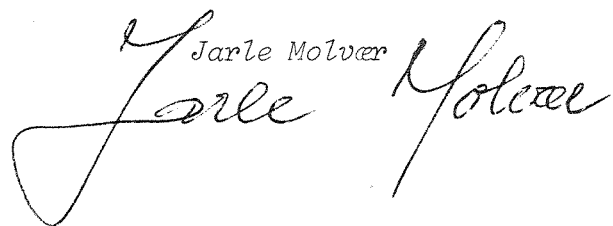 Jarle Molvær
Jarle Molvær